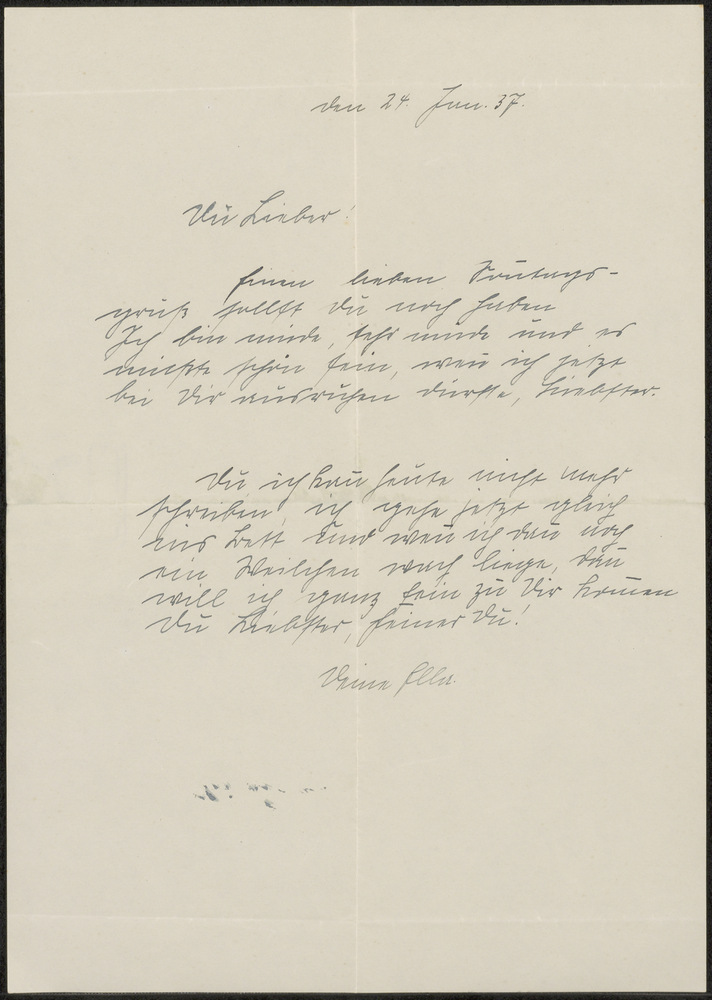 den 24. Jan. 37.
Du Lieber!
Einen lieben Sonntags-
gruß sollst Du noch haben
Ich bin müde, sehr müde und es
müßte schön sein, wen̄ ich jetzt
bei Dir ausruhen dürfte, Liebster.
Du ich kan̄ heute nicht mehr
schreiben, ich gehe jetzt gleich
ins Bett und wen̄ ich dan̄ noch
ein Weilchen wach liege, dan̄
will ich ganz fein zu Dir kom̄en
Du Liebster, feiner Du!
Deine Ella.